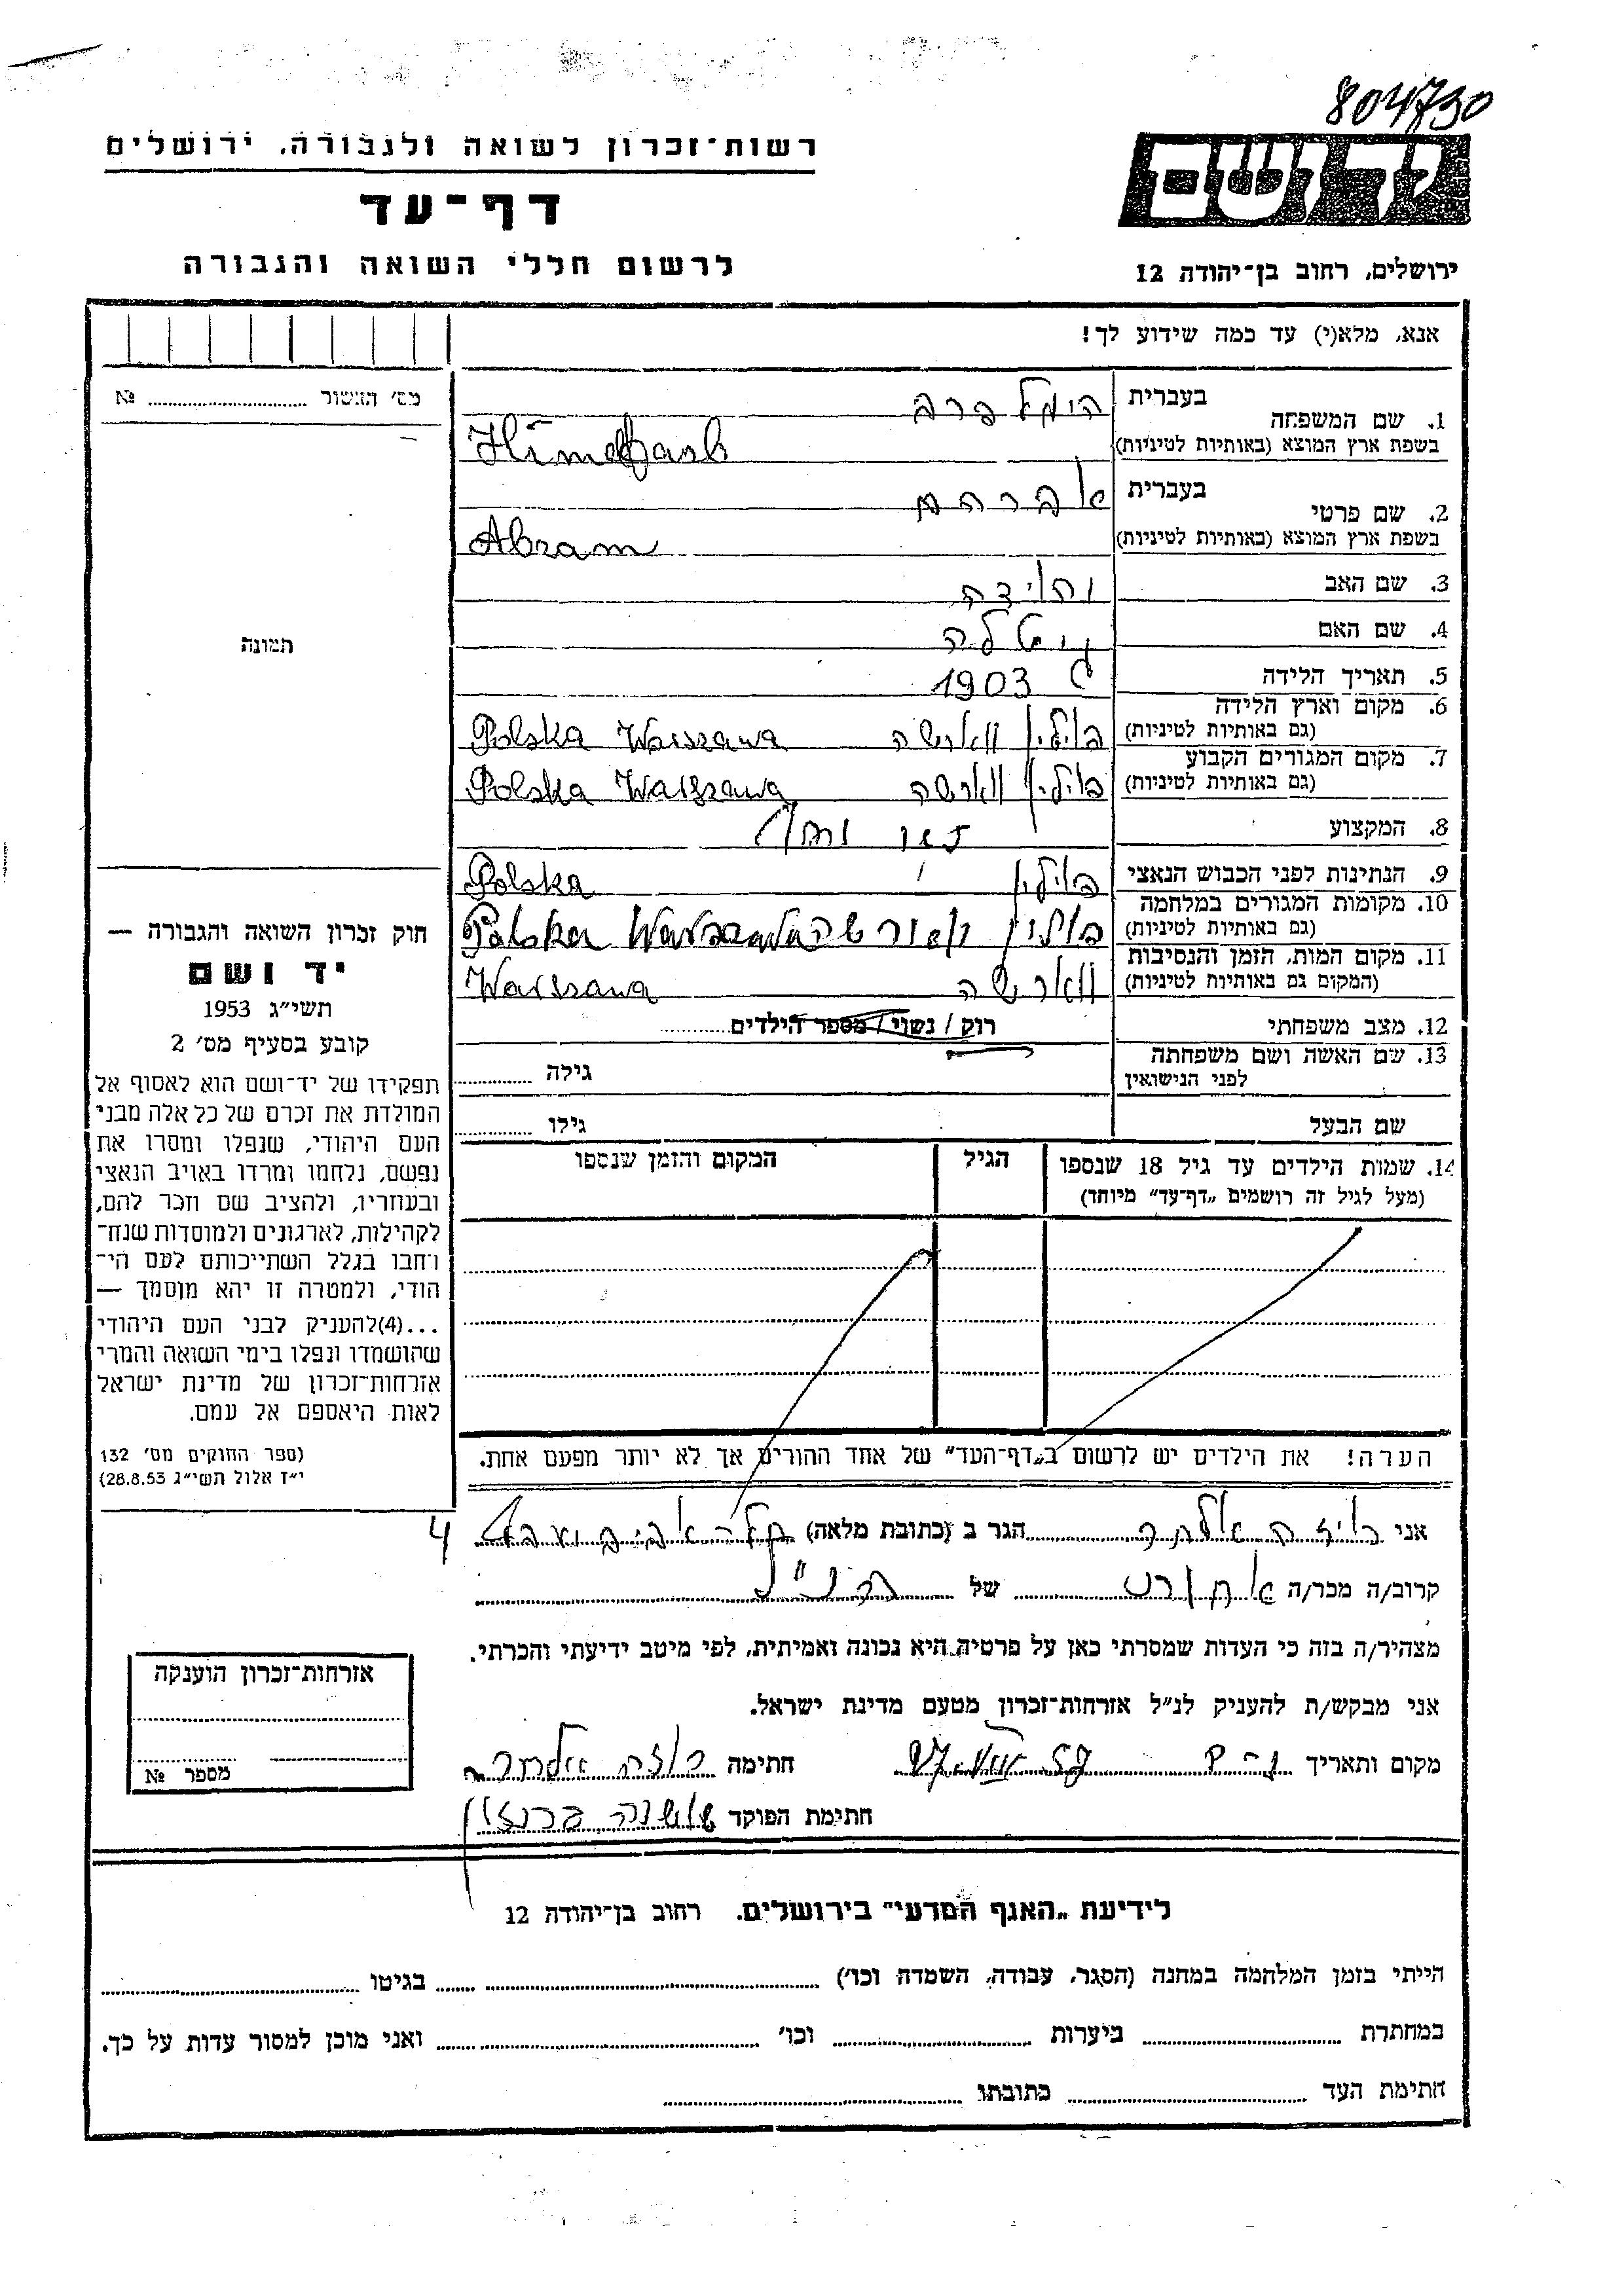 804730
רשות־זכרון לשואה ולגבורה, ירושלים
יד ושם
דף־עד
לרשום חללי השואה והגבורה
ירושלים, רחוב בן־יהודה 12
אנא, מלא(י) עד כמה שידוע לך!
מס' האשור № ....................
תמונה
1. שם המשפחה
בעברית הימלפרב
בשפת ארץ המוצא (באותיות לטיניות) Himelfarb
2. שם פרטי
בעברית אברהם
בשפת ארץ המוצא (באותיות לטיניות) Abram
3. שם האב
4. שם האם
5. תאריך הלידה 1903
6. מקום וארץ הלידה
(גם באותיות לטיניות) פולין ווארשה Polska Warszawa
7. מקום המגורים הקבוע
(גם באותיות לטיניות) פולין ווארשה Polska Warszawa
8. המקצוע
9. הנתינות לפני הכבוש הנאצי פולין Polska
10. מקומות המגורים במלחמה
(גם באותיות לטיניות) פולין Polska Warszawa
11. מקום המות, הזמן והנסיבות
(המקום גם באותיות לטיניות) ווארשה Warszawa
12. מצב משפחתי רוק / נשוי / מספר הילדים............
13. שם האשה ושם משפחתה
לפני הנישואין גילה ............
שם הבעל גילו ............
14. שמות הילדים עד גיל 18 שנספו הגיל המקום והזמן שנספו
(מעל לגיל זה רושמים „דף־עד" מיוחד)
הערה! את הילדים יש לרשום ב„דף־העד" של אחד ההורים אך לא יותר מפעם אחת.
חוק זכרון השואה והגבורה —
יד ושם
תשי"ג 1953
קובע בסעיף מס' 2
תפקידו של יד־ושם הוא לאסוף אל
המולדת את זכרם של כל אלה מבני
העם היהודי, שנפלו ומסרו את
נפשם, נלחמו ומרדו באויב הנאצי
ובעוזריו, ולהציב שם וזכר להם,
לקהילות, לארגונים ולמוסדות שנח־
רחבו בגלל השתייכותם לעם הי־
הודי, ולמטרה זו יהא מוסמך —
...(4)להעניק לבני העם היהודי
שהושמדו ונפלו בימי השואה והמרי
אזרחות־זכרון של מדינת ישראל
לאות היאספם אל עמם.
(ספר החוקים מס' 132
י"ז אלול תשי"ג 28.8.53)
אני הגר ב (כתובת מלאה) 4
קרוב/ה מכר/ה של הנ"ל
מצהיר/ה בזה כי העדות שמסרתי כאן על פרטיה היא נכונה ואמיתית, לפי מיטב ידיעתי והכרתי.
אני מבקש/ת להעניק לנ"ל אזרחות־זכרון מטעם מדינת ישראל.
מקום ותאריך חתימה
חתימת הפוקד שושנה
אזרחות־זכרון הוענקה
מספר №
לידיעת „האגף המדעי" בירושלים. רחוב בן־יהודה 12
הייתי בזמן המלחמה במחנה (הסגר, עבודה, השמדה וכו') .................... בגיטו ....................
במחתרת .................... ביערות .................... וכו' .................... ואני מוכן למסור עדות על כך.
חתימת העד .................... כתובתו ....................